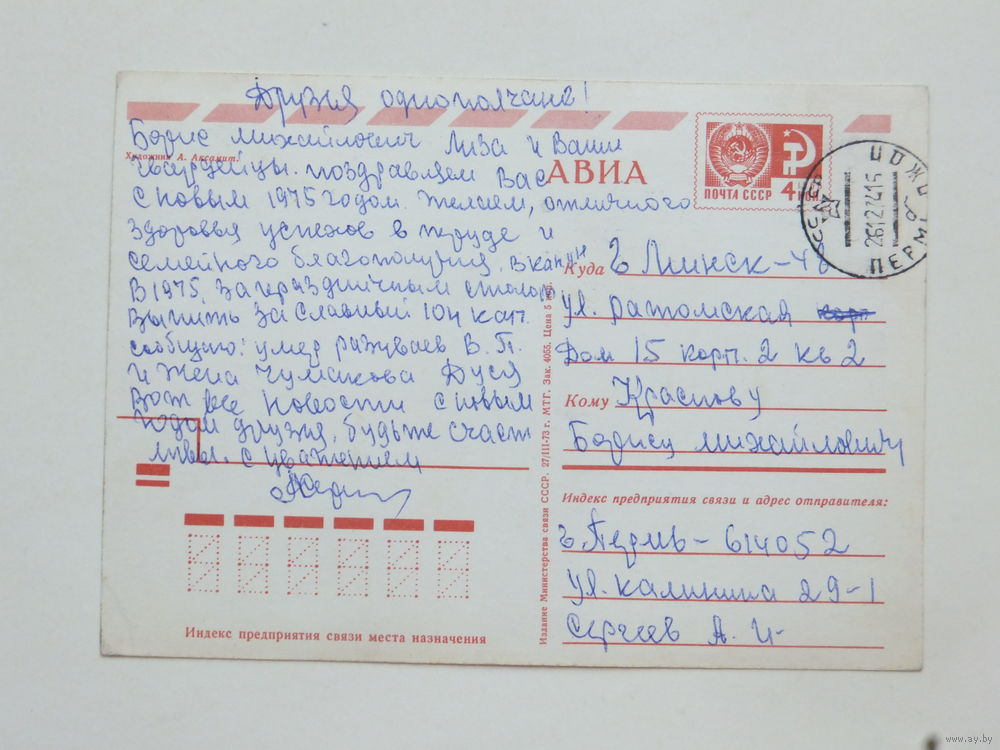 Друзья однополчане!
Борис Михайлович Лиза и Ваши
Художник А. Аксамит.
гвардейцы. поздравляем Вас
с новым 1975 годом. Желаем, отличного
здоровья успехов в труде и
семейного благополучия. В канун
В 1975, за праздничным столом
выпить за славный 104 кап.
сообщаю: умер разуваев В. П.
и жена Чумакова Дуся
Вот все новости с новым
годом друзья, будьте счаст
ливы. с уважением
АВИА
ПОЧТА СССР
4 коп.
СССР
ПЕРМЬ
26127415
Куда г Минск-48
ул. ратомская
Дом 15 корп. 2 кв 2
Кому Краснову
Борису михайлович
Индекс предприятия связи и адрес отправителя:
г. Пермь-614052
ул. Калинина 29-1
Сергеев А. И-
Издание Министерства связи СССР. 27/III-73 г. МТГ. Зак. 4055. Цена 5 коп.
Индекс предприятия связи места назначения
www.ay.by